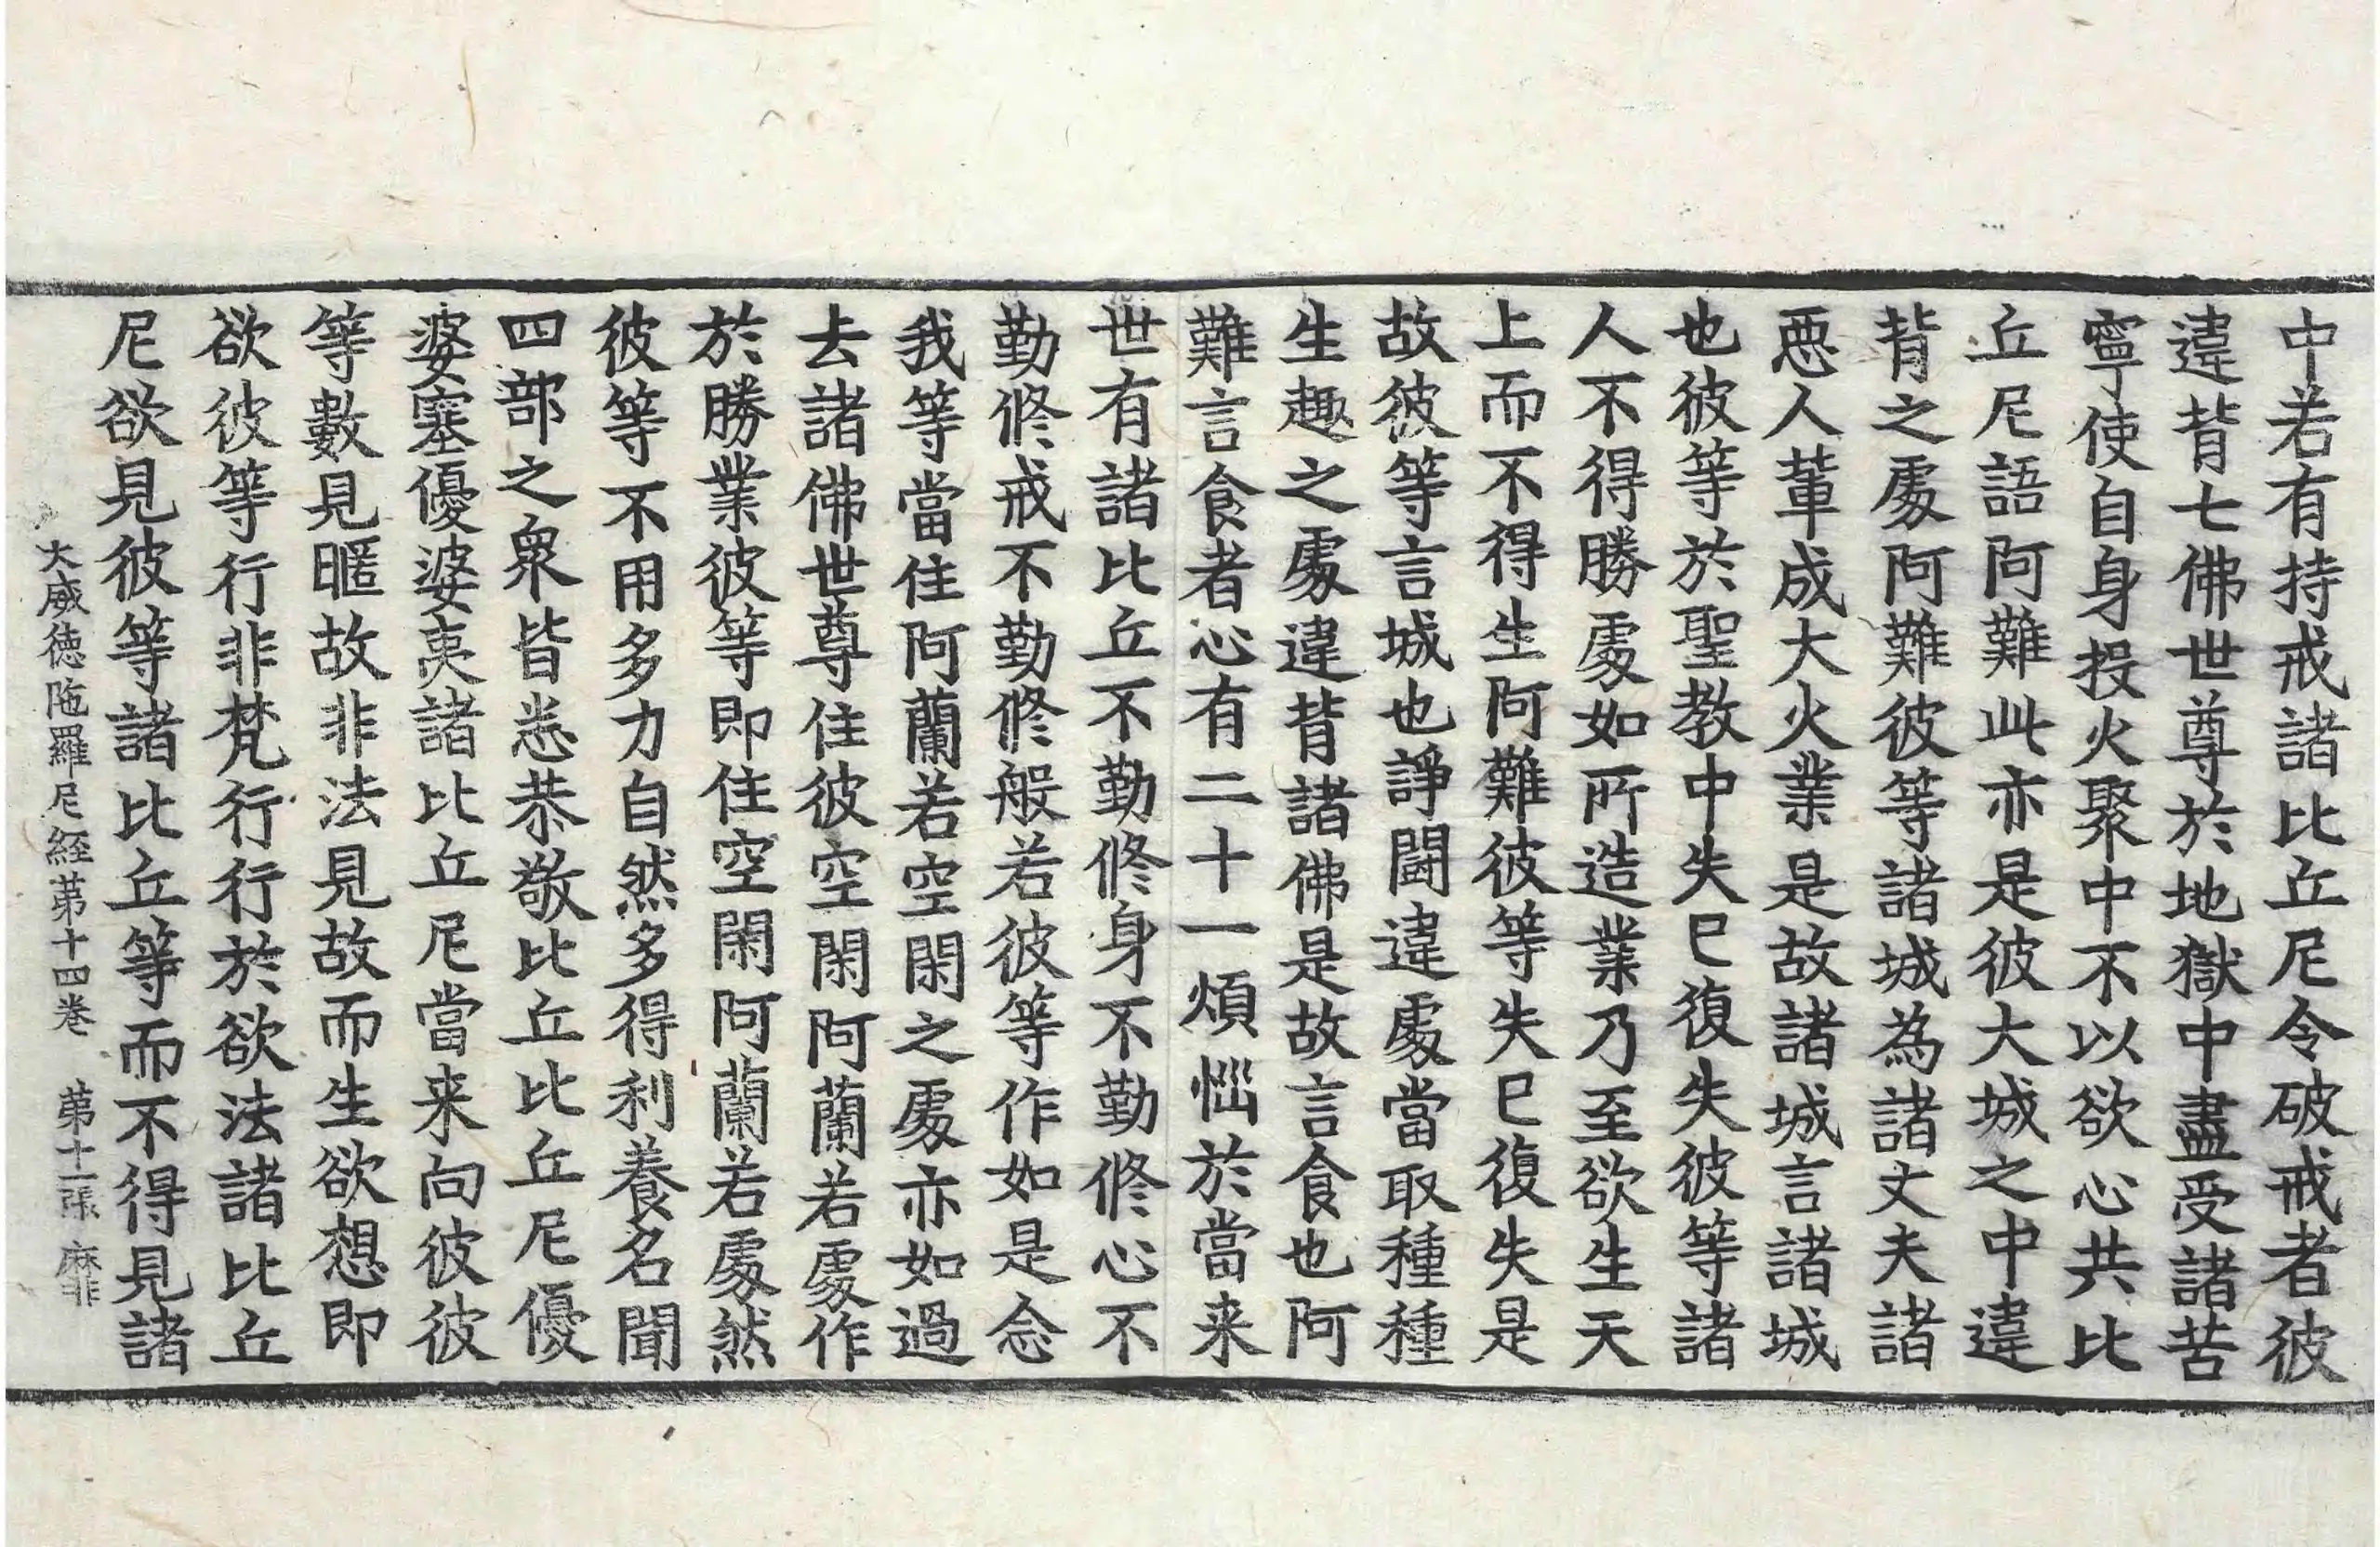 中若有持戒諸比丘尼令破戒者彼
違背七佛世尊於地獄中盡受諸苦
寧使自身投火聚中不以欲心共比
丘尼語阿難此亦是彼大城之中違
背之處阿難彼等諸城為諸丈夫諸
惡人輩成大火業是故諸城言諸城
也彼等於聖教中失已復失彼等諸
人不得勝處如所造業乃至欲生天
上而不得生阿難彼等失已復失是
故彼等言城也諍鬪違處當取種種
生趣之處違背諸佛是故言食也阿
難言食者心有二十一煩惱於當来
世有諸比丘不勤修身不勤修心不
勤修戒不勤修般若彼等作如是念
我等當住阿蘭若空閑之處亦如過
去諸佛世尊住彼空閑阿蘭若處作
於勝業彼等即住空閑阿蘭若處然
彼等不用多力自然多得利養名聞
四部之衆皆悉恭敬比丘比丘尼優
婆塞優婆夷諸比丘尼當来向彼彼
等數見暱故非法見故而生欲想即
欲彼等行非梵行行於欲法諸比丘
尼欲見彼等諸比丘等而不得見諸
大威徳陁羅尼経苐十四巻 苐十一張 靡